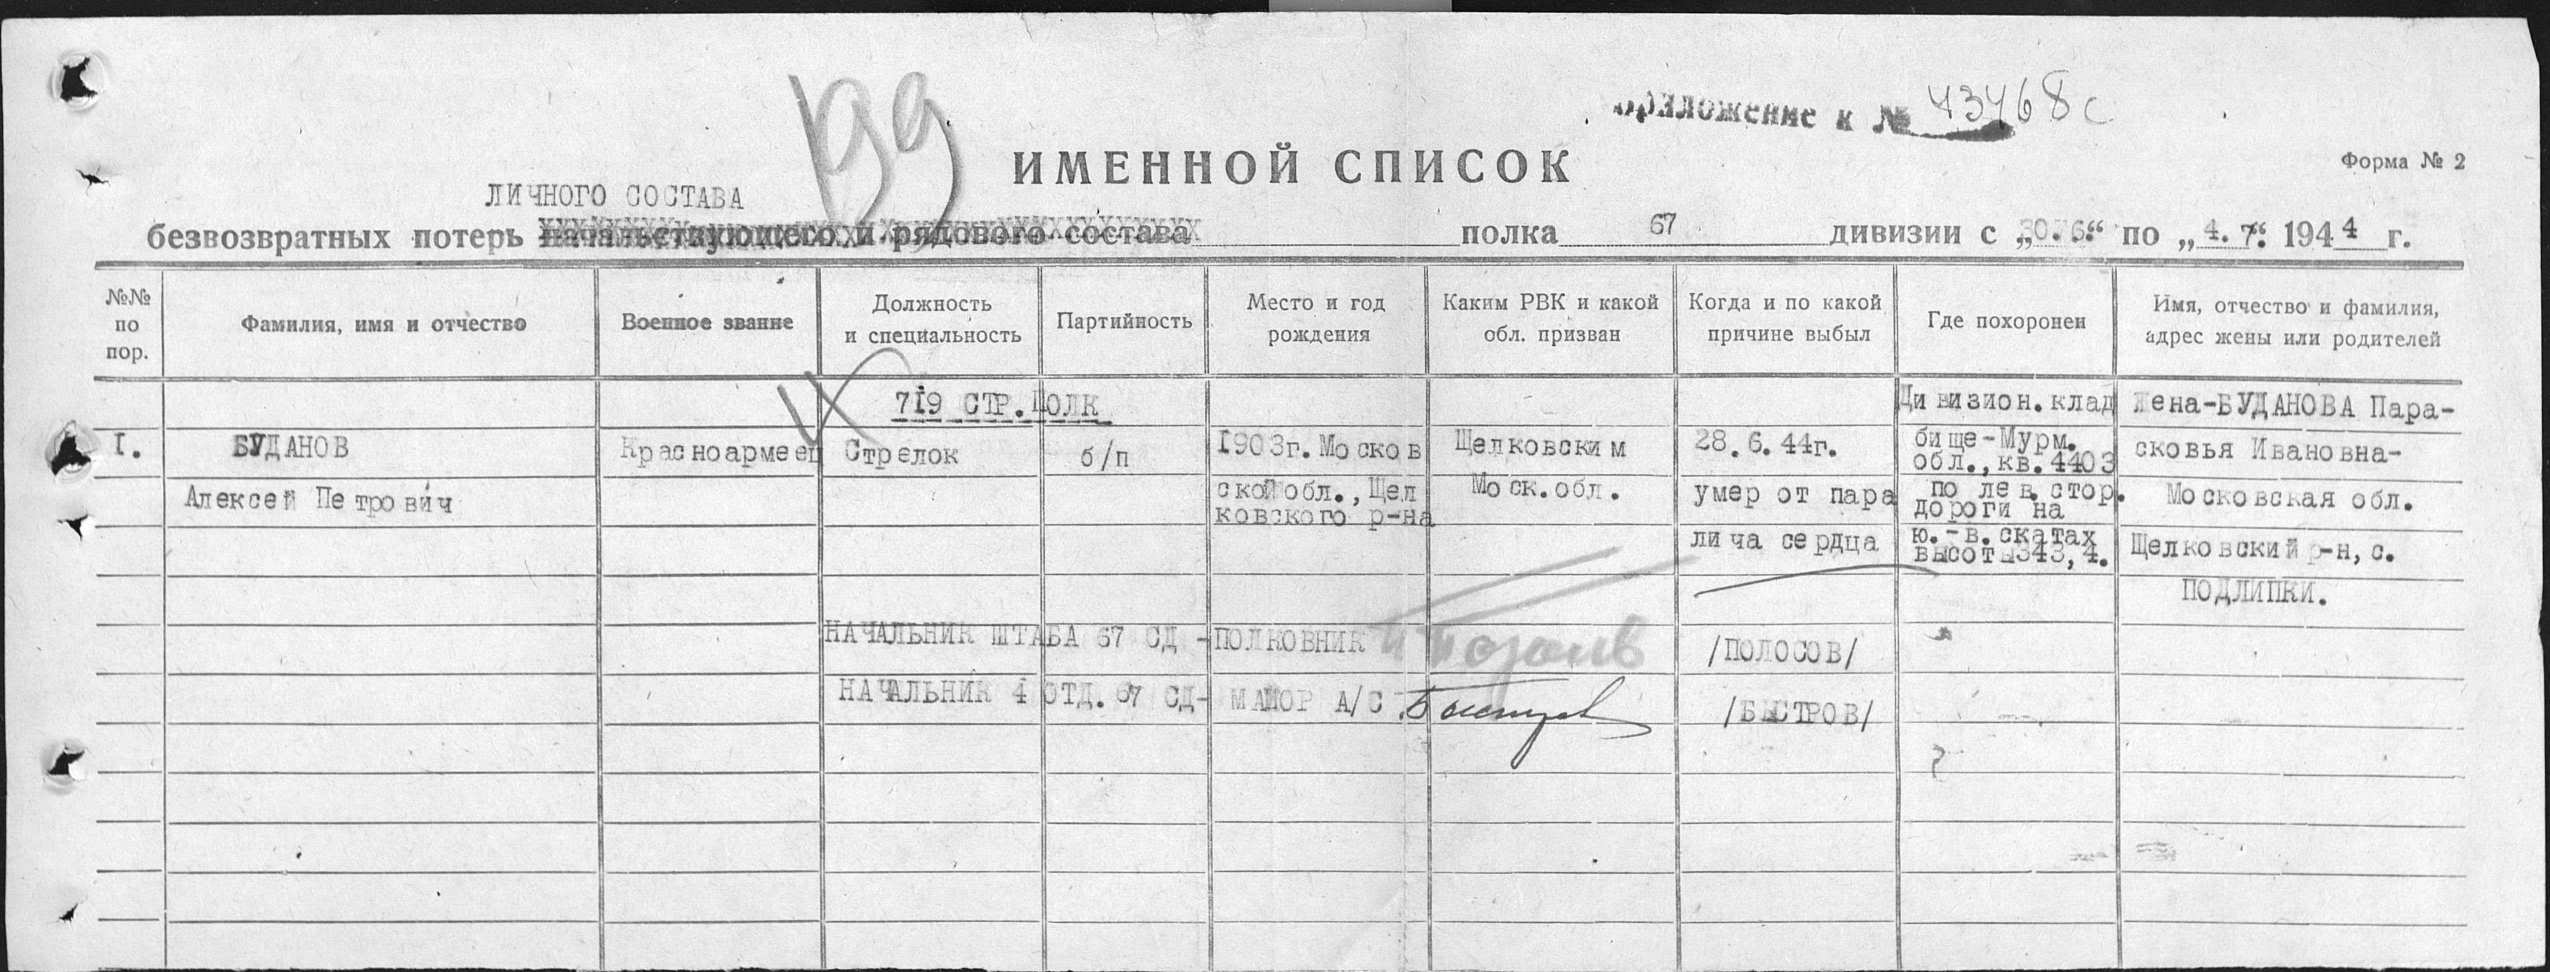 199
Приложение к № 43468с
ИМЕННОЙ СПИСОК
Форма № 2
ЛИЧНОГО СОСТАВА
безвозвратных потерь начальствующего и рядового состава полка 67 дивизии с „30.6.“ по „4.7.“ 1944 г.
№№ по пор.
Фамилия, имя и отчество
Военное звание
Должность и специальность
Партийность
Место и год рождения
Каким РВК и какой обл. призван
Когда и по какой причине выбыл
Где похоронен
Имя, отчество и фамилия, адрес жены или родителей
719 СТР.ПОЛК
I.
БУДАНОВ
Алексей Петрович
Красноармеец
Стрелок
б/п
1903г. Москов
ской обл., Щел
ковского р-на
Щелковским
Моск.обл.
28.6.44г.
умер от пара
лича сердца
Дивизион.клад
бище-Мурм.
обл.,кв.4403
по лев.стор.
дороги на
ю.-в.скатах
высоты343,4.
Жена-БУДАНОВА Пара-
сковья Ивановна-
Московская обл.
Щелковский р-н, с.
ПОДЛИПКИ.
НАЧАЛЬНИК ШТАБА 67 СД -ПОЛКОВНИК /ПОЛОСОВ/
НАЧАЛЬНИК 4 ОТД. 67 СД- МАЙОР А/С Быстров /БЫСТРОВ/